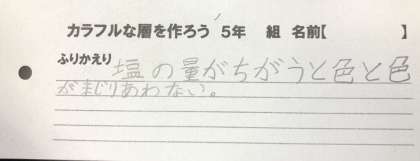 カラフルな層を作ろう 5年 組 名前【 】
ふりかえり 塩の量がちがうと色と色
がまじりあわない。